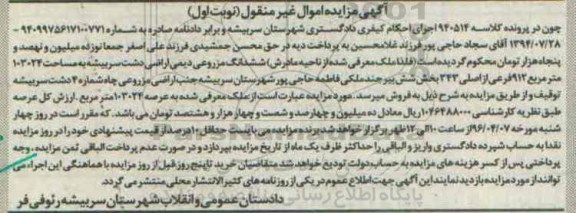 آگهی مزایده اموال غیر منقول (نوبت اول)
چون در پرونده کلاسه ۹۴۰۵۱۴ اجرای احکام کیفری دادگستری شهرستان سربیشه و برابر دادنامه صادره به شماره ۹۴۰۹۹۷۵۶۱۷۱۰۰۷۷۱ -
۱۳۹۴/۰۷/۲۸ آقای سجاد حاجی پور فرزند غلامحسین به پرداخت دیه در حق محسن جمشیدی فرزند علی اصغر جمعا نوزده میلیون و نهصد و
پنجاه هزار تومان محکوم گردیده است (فلذا ملک معرفی شده از ناحیه مادرش) ششدانگ مزروعی دیمی اراضی دشت سربیشه به مساحت ۱۰۳۰۳۴
متر مربع ۹۱۲ فرعی از اصلی ۳۴۳ بخش شش بیرجند ملکی فاطمه حاجی پور شهرستان سربیشه جنب اراضی مزروعی چاه شماره ۴ دشت سربیشه
توقیف و از طریق مزایده به شرح ذیل به فروش میرسد. مورد مزایده عبارت است از ملک معرفی شده به عرصه ۱۰۳۰۳۴ متر مربع. ارزش کل عرصه
طبق نظریه کارشناسی ۱۰۴۶۸۸۰۰۰ ریال معادل ده میلیون و چهارصد و شصت و چهار هزار و هشتصد تومان می باشد. که مقرر است در روز چهار
شنبه مورخه ۹۶/۰۴/۰۷ از ساعت ۱۰ الی ۱۲ ظهر برگزار خواهد شد. برنده مزایده می بایست حداقل ۱۰ درصد از قیمت پیشنهادی خود را در روز مزایده
نقدا به حساب سپرده دادگستری واریز و الباقی را حداکثر ظرف یک ماه از تاریخ مزایده بپردازد و در صورت عدم پرداخت الباقی ثمن مزایده، وجه
پرداختی پس از کسر هزینه های مزایده به حساب دولت تودیع خواهد شد. متقاضیان خرید تا پنج روز قبل از روز مزایده با هماهنگی این اجراء می
توانند از مورد مزایده بازدید نمایند این آگهی جهت اطلاع عموم در یکی از روزنامه های کثیر الانتشار محلی منتشر می گردد.
دادستان عمومی و انقلاب شهرستان سربیشه رئوفی فر